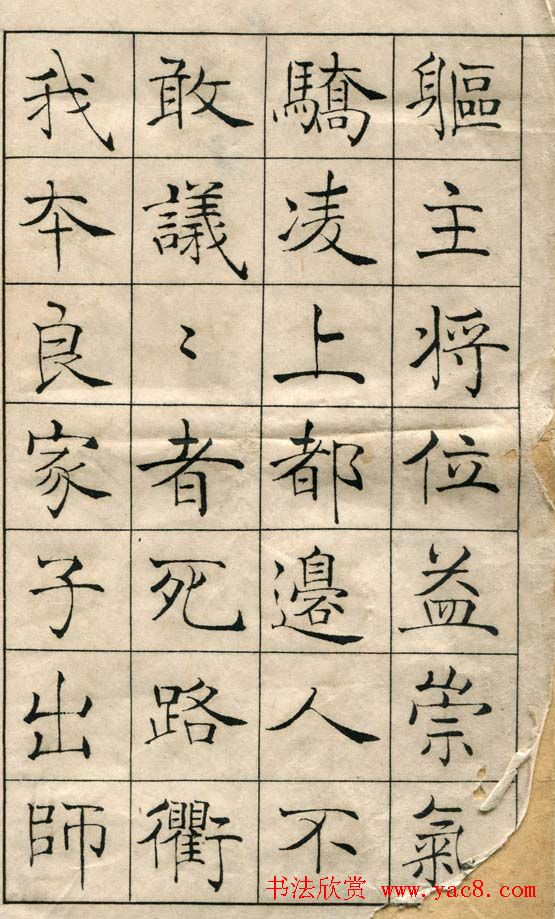 軀主将位益崇氣
驕凌上都邊人不
敢議〻者死路衢
我本良家子出師
书法欣赏 www.yac8.com